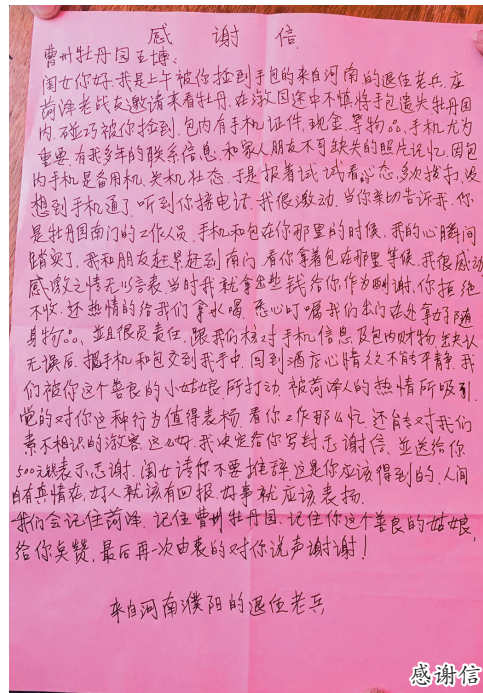 感谢信
曹州牡丹园王博：
闺女你好，我是上午被你捡到手包的来自河南的退伍老兵，应
菏泽老战友邀请来看牡丹，在游园途中不慎将手包遗失牡丹园
内，碰巧被你捡到，包内有手机证件，现金，等物品，手机尤为
重要有我多年的联系信息，和家人朋友不可缺失的照片记忆，因包
内手机是备用机，关机状态，于是报着试试看心态，多次拨打，没
想到手机通了，听到你接电话，我很激动，当你亲切告诉我，你
是牡丹园南门的工作人员，手机和包在你那里的时候，我的心瞬间
踏实了，我和朋友赶紧赶到南门，看你拿着包在那里等候，我很感动
感激之情无以信表，当时我就拿出些钱给你，作为酬谢，你拒绝
不收，还热情的给我们拿水喝，悉心叮嘱我们出门在外拿好随
身物品，并且很负责任，跟我们核对手机信息及包内财物，缺认
无误后，把手机和包交到我手中，回到酒店心情久久不能平静，我
们被你这个善良的小姑娘所打动，被菏泽人的热情所吸引，
觉的对你这种行为值得表杨，看你工作那么忙，还能对我们
素不相识的游客，这么好，我决定给你写封感谢信，並送给你
500元钱表示感谢，闺女请你不要推辞，这是你应该得到的，人间
自有真情在，好人就该有回报，好事就应该表扬，
我们会记住菏泽，记住曹州牡丹园，记住你这个善良的姑娘，
给你点赞，最后再一次由衷的对你说声谢谢！
来自河南濮阳的退伍老兵
感谢信